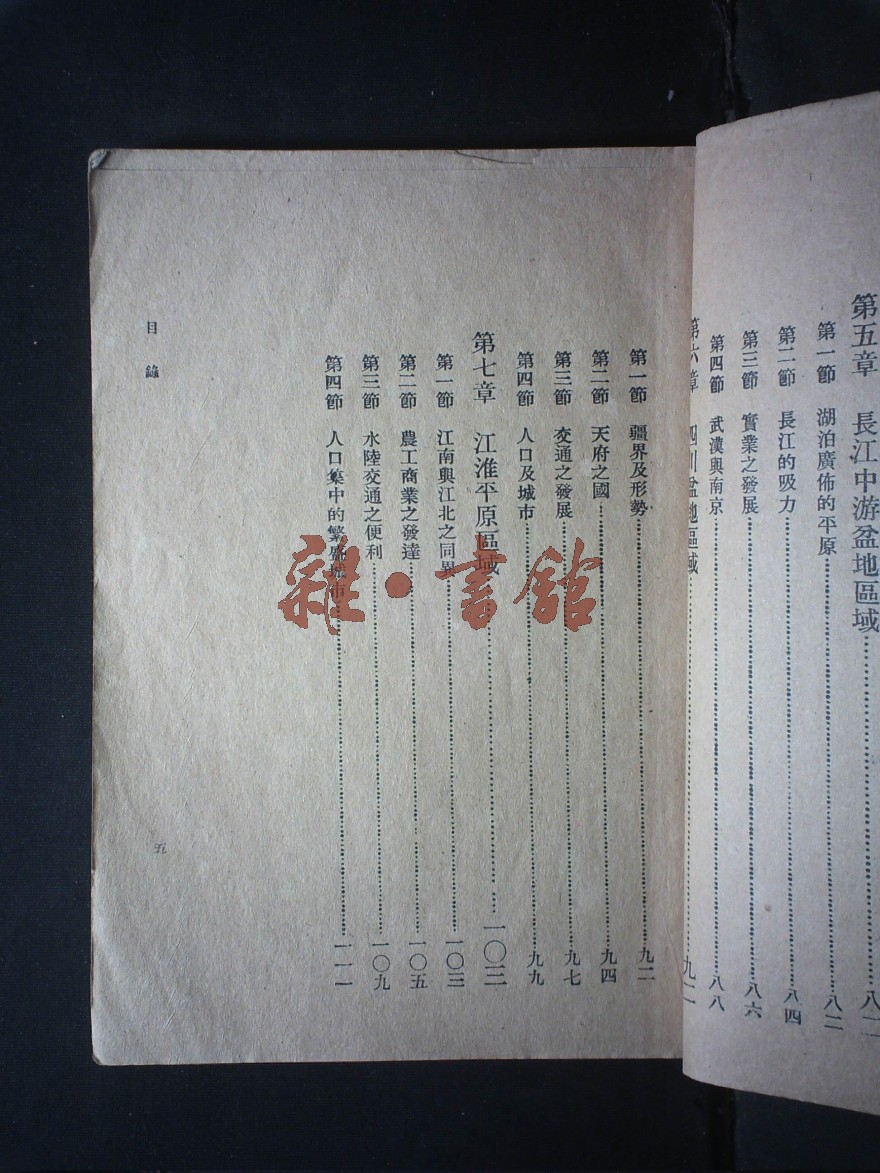 第五章 長江中游盆地區域
第一節 湖泊廣佈的平原……八二
第二節 長江的吸力……八四
第三節 實業之發展……八六
第四節 武漢與南京……八八
第六章 四川盆地區域……九二
第一節 疆界及形勢……九二
第二節 天府之國……九四
第三節 交通之發展……九七
第四節 人口及城市……九九
第七章 江淮平原區域……一〇三
第一節 江南與江北之同異……一〇三
第二節 農工商業之發達……一〇五
第三節 水陸交通之便利……一〇九
第四節 人口集中的繁盛城市……一一一
目錄
五
雜·書館